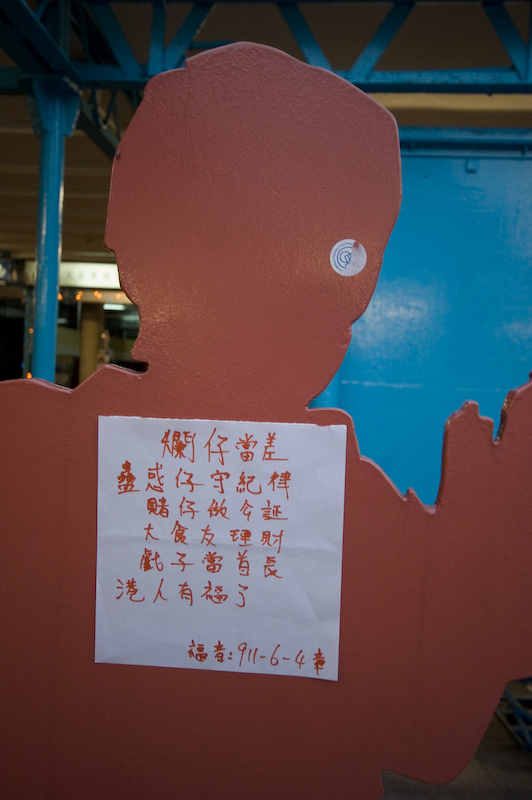 爛仔當差
蠱惑仔守紀律
賭仔做公証
大食友理財
戱子當首長
港人有福了
福音:911-6-4章